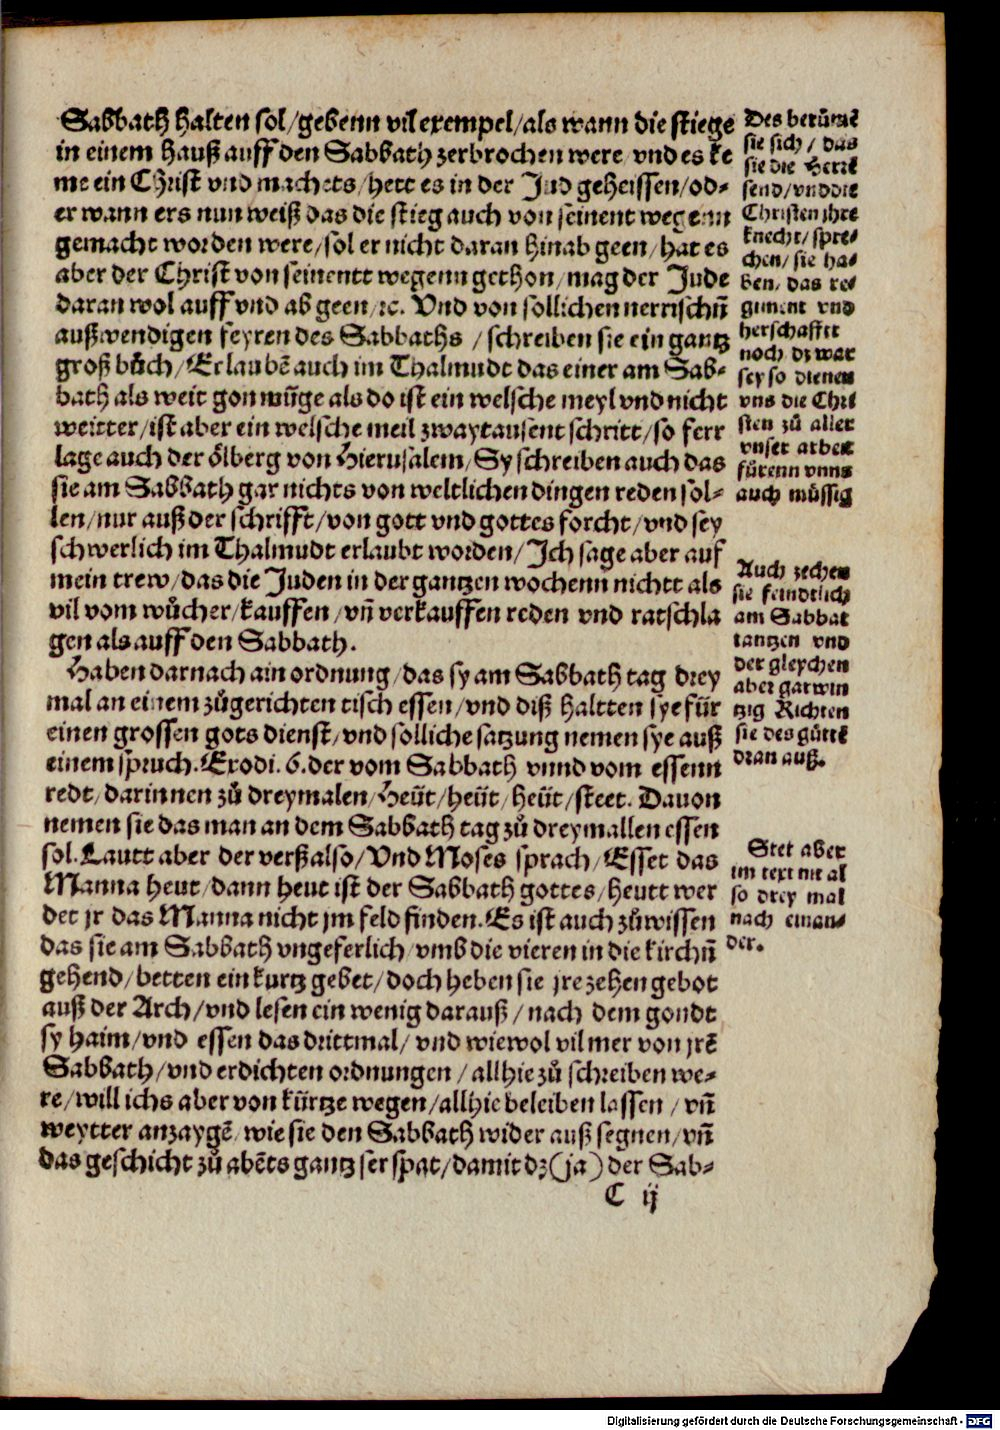 Sabbath halten sol/gebenn vil exempel/als wann die stiege
in einem hauß auff den Sabbath zerbrochen were vnd es ke
me ein Christ vnd machets/hett es in der Jud geheissen/od-
er wann ers nun weiß das die stieg auch von seinent wegenn
gemacht worden were/sol er nicht daran hinab geen/hat es
aber der Christ von seinentt wegenn gethon/mag der Jude
daran wol auff vnd ab geen/⁊c. Vnd von sollichen nerrischn̄
außwendigen feyren des Sabbaths /schreiben sie ein gantz
groß bůch/Erlaubē auch im Thalmudt das einer am Sab-
bath als weit gon mūge als do ist ein welsche meyl vnd nicht
weitter/ist aber ein welsche meil zwaytausent schritt/so ferr
lage auch der ölberg von Hierusalem/Sy schreiben auch das
sie am Sabbath gar nichts von weltlichen dingen reden sol-
len/nur auß der schrifft/von gott vnd gottes forcht/vnd sey
schwerlich im Thalmudt erlaubt worden/Jch sage aber auf
mein trew/das die Juden in der gantzen wochenn nichtt als
vil vom wůcher/kauffen/vn̄ verkauffen reden vnd ratschla
gen als auff den Sabbath.
Haben darnach ain ordnung/das sy am Sabbath tag drey
mal an einem zůgerichten tisch essen/vnd diß haltten sye für
einen grossen gots dienst/vnd solliche satzung nemen sye auß
einem spruch.Exodi.6.der vom Sabbath vnnd vom essenn
redt/darinnen zů dreymalen/Heüt/heüt/heüt/steet. Dauon
nemen sie das man an dem Sabbath tag zů dreymallen essen
sol.Lautt aber der verß also/Vnd Moses sprach/Esset das
Manna heut/dann heut ist der Sabbath gottes/heutt wer
det jr das Manna nicht jm feld finden.Es ist auch zůwissen
das sie am Sabbath vngeferlich/vmb die vieren in die kirchn̄
gehend/betten ein kurtz gebet/doch heben sie jre zehen gebot
auß der Arch/vnd lesen ein wenig darauß/nach dem gondt
sy haim/vnd essen das drittmal/vnd wiewol vil mer von jrē
Sabbath/vnd erdichten ordnungen/allhie zů schreiben we-
re/will ichs aber von kürtze wegen/allhie beleiben lassen /vn̄
weytter anzaygē/wie sie den Sabbath wider auß segnen/vn̄
das geschicht zů abēts gantz ser spat/damit dz(ja)der Sab-
C ij
Des berůmē
sie sich/ das
sie die Herrē
send/vnd die
Christen jhre
knecht/spre-
chen/sie ha-
ben/das re-
giment vnd
herschafftt
noch dz war
sey so dienen
vns die Chri
sten zů aller
vnser arbeit
fůrenn vnns
auch müssig
Auch zechen
sie feindtlich
am Sabbat
tantzen vnd
der gleychen
aber gar win
tzig Richten
sie des gůttē
dran auß.
Stet aber
im text nit al
so drey mal
nach einan-
der.
Digitalisierung gefördert durch die Deutsche Forschungsgemeinschaft - DFG